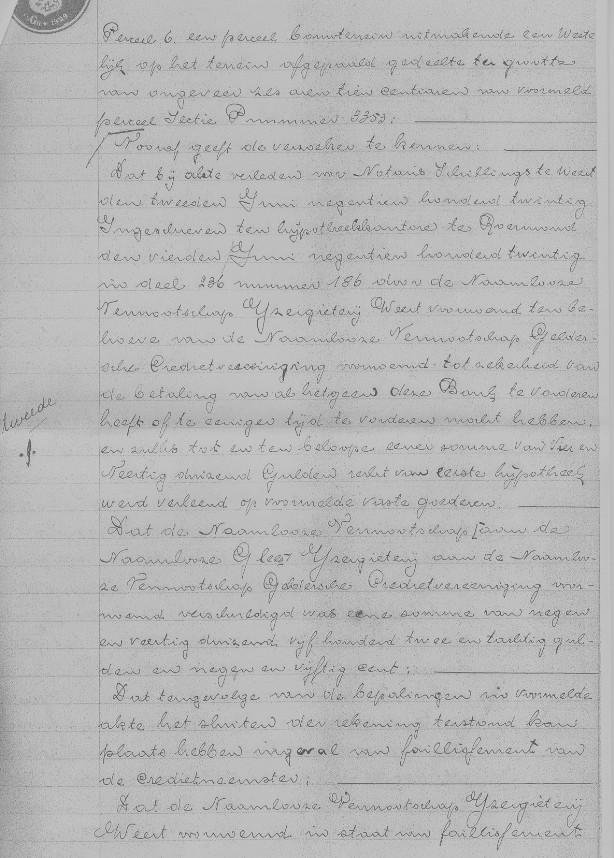 Perceel 6. een perceel bouwterrein uitmakende een Weste
lijk op het terrein afgepaald gedeelte ter grootte
van ongeveer zes aren tien centiaren van voormeld
perceel Sectie P nummer 3353;
Vooraf geeft de verzoeker te kennen:
Dat bij akte verleden voor Notaris Schillings te Weert
den tweeden Juni negentien honderd twintig
Ingeschreven ten hypotheekkantore te Roermond
den vierden Juni negentien honderd twintig
in deel 236 nummer 186 door de Naamlooze
Vennootschap Yzergieterij Weert voornoemd ten be-
hoeve van de Naamlooze Vennootschap Gelder-
sche Credietvereeniging voornoemd tot zekerheid van
de betaling van al hetgeen deze Bank te vorderen
tweede
heeft of te eeniger tijd te vorderen mocht hebben,
en zulks tot en ten beloope eener somme van Vier en
Veertig duizend Gulden recht van eerste hypotheek
werd verleend op voormelde vaste goederen.
Dat de Naamlooze Vennootschap
Naamlooze Yzergieterij aan de Naamloo-
ze Vennootschap Geldersche Credietvereeniging voor-
noemd verschuldigd was eene somme van negen
en veertig duizend vijf honderd twee en tachtig gul-
den en negen en vijftig cent;
Dat tengevolge van de bepalingen in voormelde
akte het sluiten der rekening terstond kan
plaats hebben ingeval van faillissement van
de Credietneemster;
Dat de Naamlooze Vennootschap Yzergieterij
Weert voornoemd in staat van faillissement